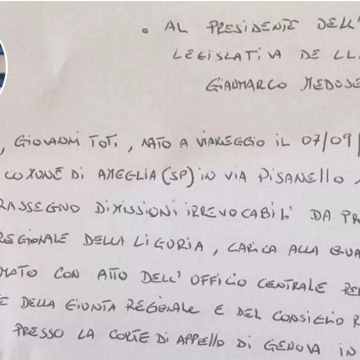 • AL PRESIDENTE DELL'
LEGISLATIVA DE LL
GIANMARCO MEDUSE
, GIOVANNI TOTI, NATO A VIAREGGIO IL 07/09/
COMUNE DI AMEGLIA (SP) IN VIA PISANELLO
RASSEGNO DIMISSIONI IRREVOCABILI DA PR
REGIONALE DELLA LIGURIA, CARICA ALLA QUA
MATO CON ATTO DELL'UFFICIO CENTRALE RE
E DELLA GIUNTA REGIONALE E DEL CONSIGLIO R
PRESSO LA CORTE DI APPELLO DI GENOVA IN